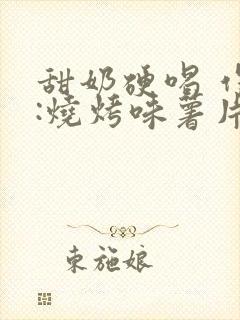 甜奶硬喝
:燒烤味薯片
東施娘